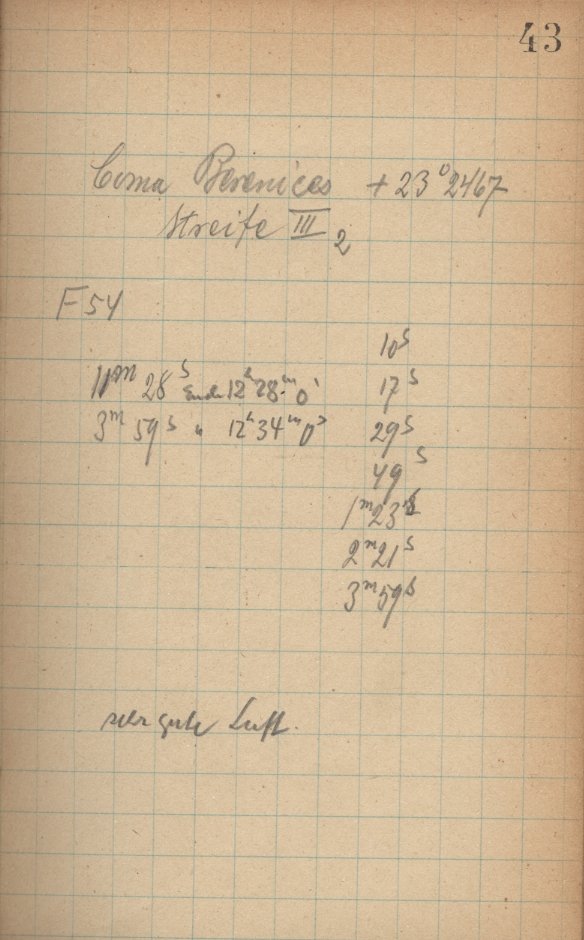 43
Coma Berenices + 23° 2467
Streife III 2
F 54
10s
11m 28s Ende 12h 28m 0s 17s
3m 59s " 12h 34m 0s 29s
49s
1m 23s
2m 21s
3m 59s
sehr gute Luft.